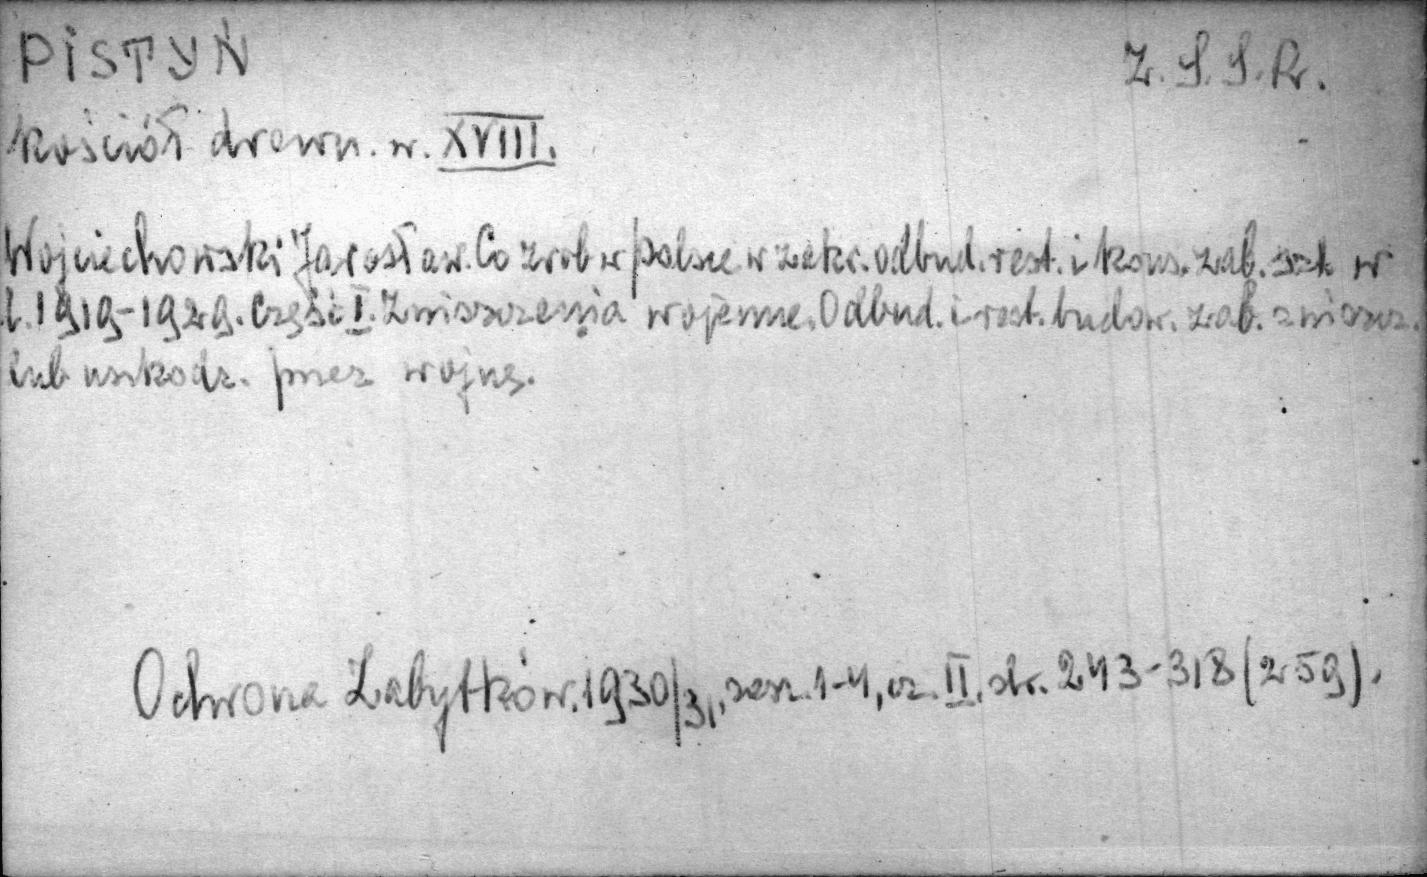 PISTYŃ
Z.S.S.R.
kościół drewn. w. XVIII.
Wojciechowski Jarosław. Co zrob w Polsce w zakr. odbud. rest. i kons. zab. szt w
l. 1919-1929. Część I. Zniszczenia wojenne. Odbud. i rest. budow. zab. zniszcz.
lub uszkodz. przez wojnę.
Ochrona Zabytków. 1930/31, zesz. 1-4, cz. II. str. 243-318 (259).